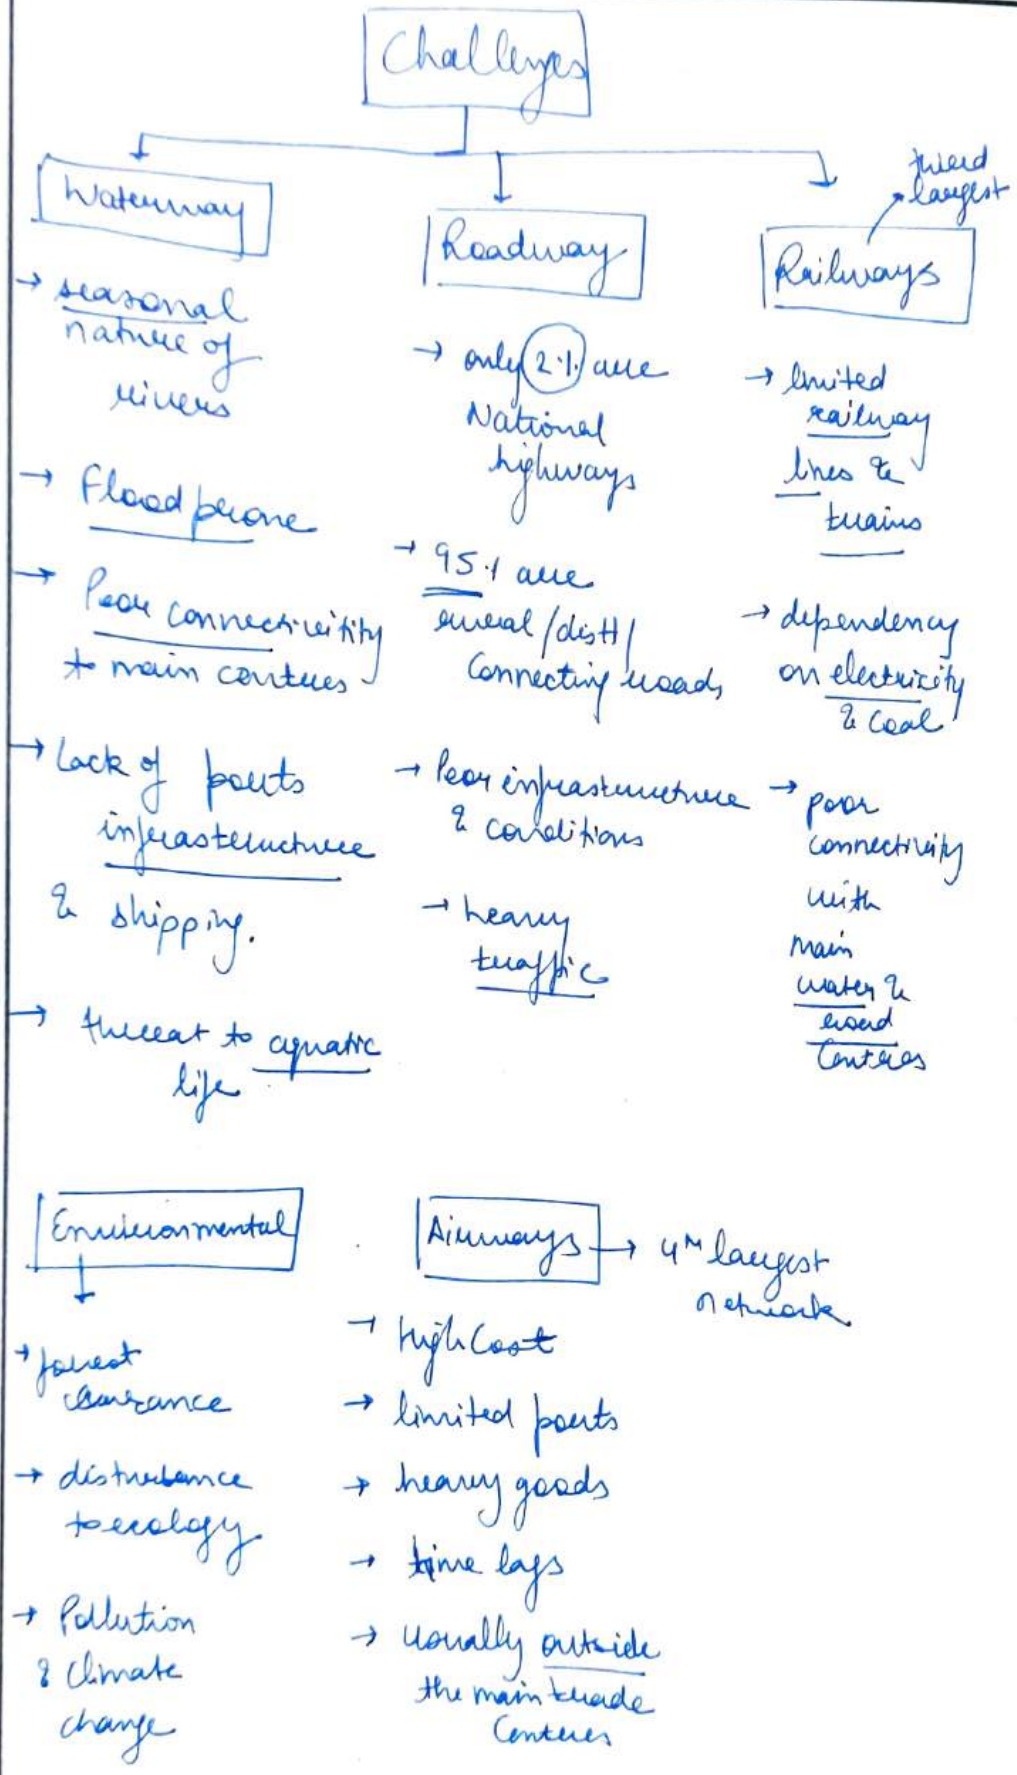 Challenges
Waterway
→ seasonal
nature of
rivers
→ Flood prone
→ Poor connectivitity
to main centres
→ Lack of ports
infrastructure
& shipping.
→ threat to aquatic
life
Roadway
→ only 2% are
National
highways
→ 95% are
rural/distt/
Connecting roads
→ Poor infrastructure
& conditions
→ heavy
traffic
third
largest
Railways
→ limited
railway
lines &
trains
→ dependency
on electricity
& coal
→ poor
connectivity
with
main
water &
road
Centres
Environmental
→ forest
clearance
→ disturbance
to ecology
→ Pollution
& Climate
change
Airways → 4th largest
network
→ High Cost
→ limited ports
→ heavy goods
→ time lags
→ usually outside
the main trade
Centres